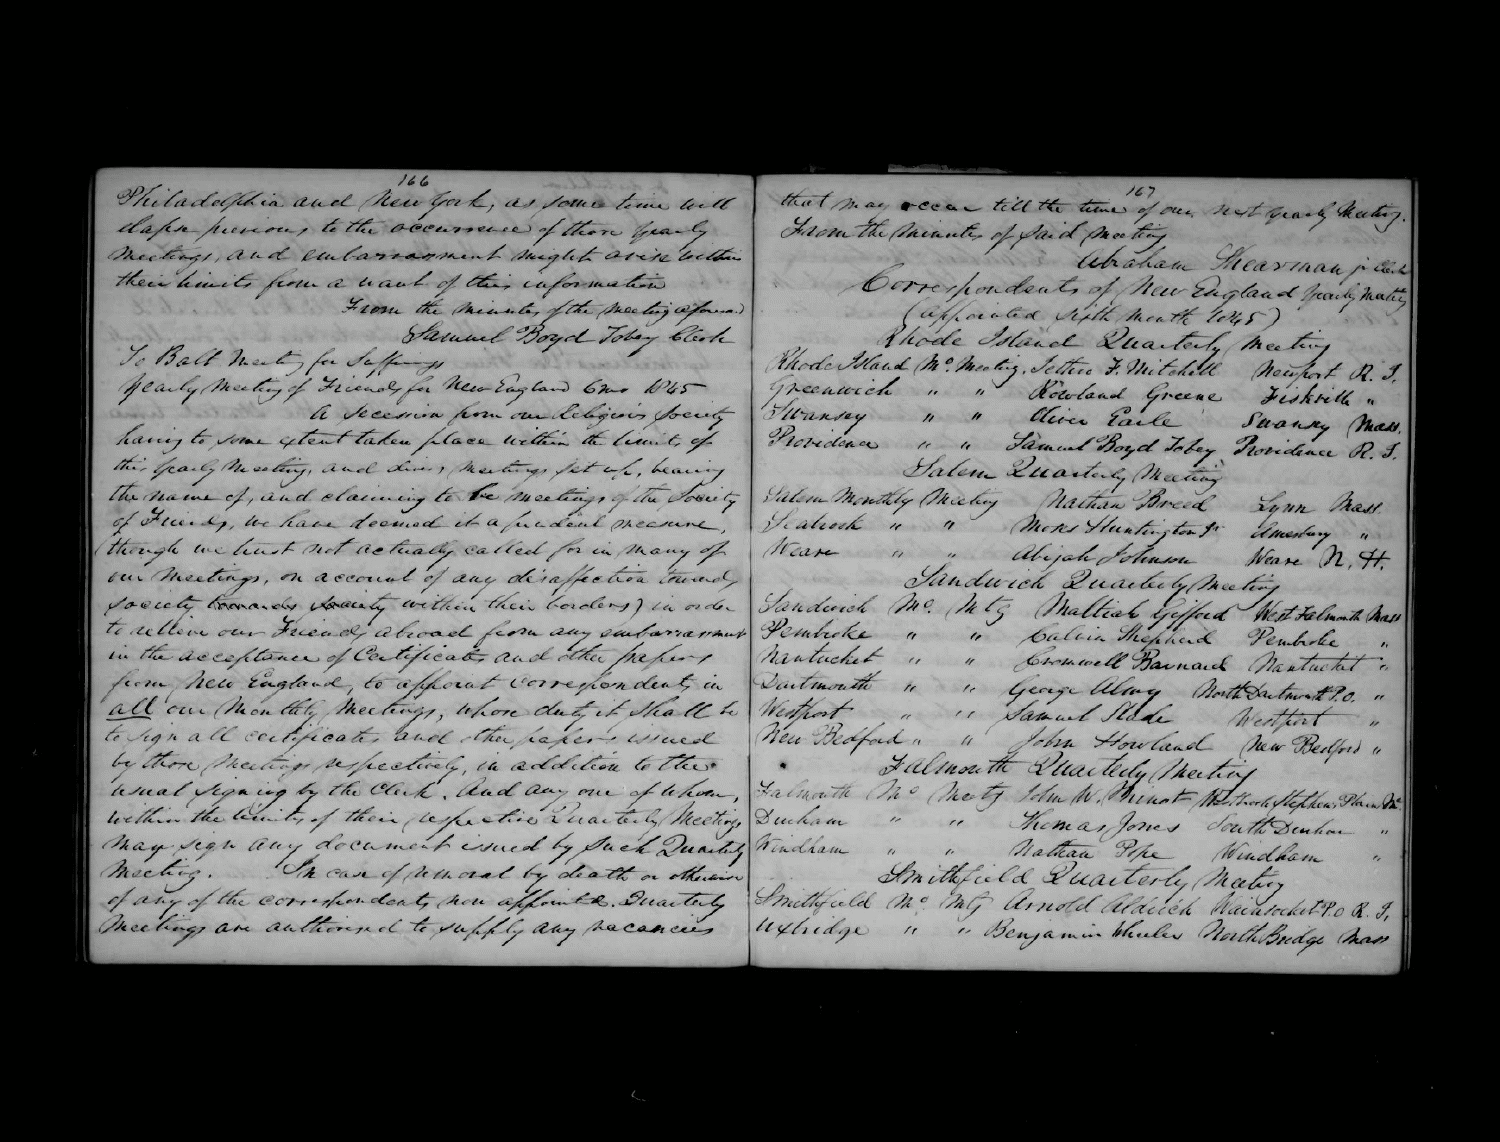 166
Philadelphia and New York, as some time will
elapse previous to the occurrence of those Yearly
Meetings, and embarrassment might arise within
their limits from a want of this information
From the minutes of the meeting aforesaid
Samuel Boyd Tobey Clerk
To Balt Meeting for Sufferings
Yearly Meeting of Friends for New England 6mo 1845
A secession from our Religious Society
having to some extent taken place within the limits of
this Yearly Meeting, and divers meetings set up, bearing
the name of, and claiming to be meetings of the Society
of Friends, we have deemed it a prudent measure,
(though we trust not actually called for in many of
our Meetings, on account of any disaffection towards
society towards society within their borders) in order
to relieve our Friends abroad from any embarrassment
in the acceptance of Certificates and other papers
from New England, to appoint correspondents in
all our Monthly Meetings, whose duty it shall be
to sign all certificates and other papers issued
by those Meetings respectively, in addition to the
usual signing by the Clerk. And any one of whom,
within the limits of their respective Quarterly Meetings
may sign any document issued by such Quarterly
Meeting. In case of removal by death or otherwise
of any of the correspondents now appointed. Quarterly
Meetings are authorised to supply any vacancies
167
that may occur till the time of our next Yearly Meeting.
From the minutes of said meeting
Abraham Shearman jr Clerk
Correspondents of New England Yearly Meeting
(appointed sixth month 1845)
Rhode Island Quarterly Meeting
Rhode Island Mo. Meeting. Jethro F. Mitchell Newport R. I.
Greenwich " " Rowland Greene Fiskville "
Swansey " " Oliver Earle Swansey Mass.
Providence " " Samuel Boyd Tobey Providence R. I.
Salem Quarterly Meeting
Salem Monthly Meeting Nathan Breed Lynn Mass
Seabrook " " Moses Huntington Jr Amesbury "
Weare " " Abijah Johnson Weare N. H.
Sandwich Quarterly Meeting
Sandwich Mo. Mtg Maltiah Gifford West Falmouth Mass
Pembroke " " Calvin Shepherd Pembroke "
Nantucket " " Cromwell Barnard Nantucket "
Dartmouth " " George Almy North Dartmouth P.O. "
Westport " " Samuel Slade Westport "
New Bedford " " John Howland New Bedford "
Falmouth Quarterly Meeting
Falmouth Mo Meetg John W. Minot Westbrook Stephens Plains Me
Durham " " Thomas Jones South Durham "
Windham " " Nathan Pope Windham "
Smithfield Quarterly Meeting
Smithfield Mo. Mtg Arnold Aldrich Wainsocket P.O R. I,
Uxbridge " " Benjamin Wheeler North Bridge Mass